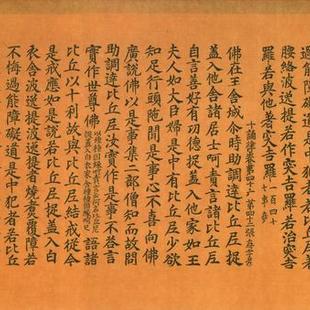 過能障礙道是中犯者若比丘尼
腰絡波逸提若作突吉羅若治突吉
羅若與他著突吉羅 一百四十七事竟
十誦律卷第四十
佛在王舍城尒時助調達比丘尼捉
蓋入他舍諸居士呵責言諸比丘尼
自言善好有功德捉蓋入他家如王
夫人如大臣婦是中有比丘尼少欲
知足行頭陁聞是事心不喜向佛
廣說佛以是事集二部僧知而故問
助調達比丘尼汝實作是事不荅言
實作世尊佛 語諸
比丘以十利故與比丘尼結戒從今
是戒應如是說若比丘尼捉蓋入白
衣舍波逸提波逸提者燒煑覆障若
不悔過能障礙道是中犯者若比丘